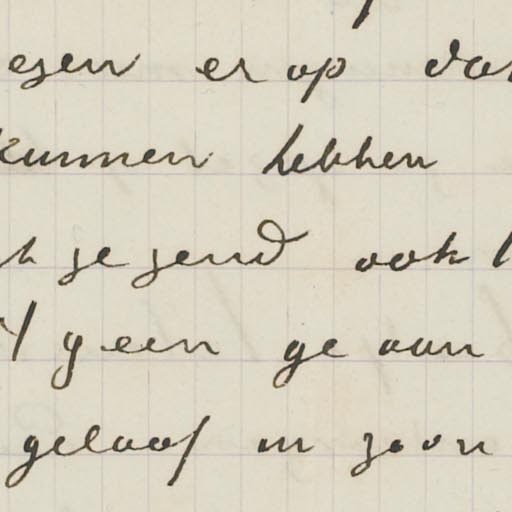 er op
kunnen hebben
gezend ook
geen ge aan
geloof in zoon